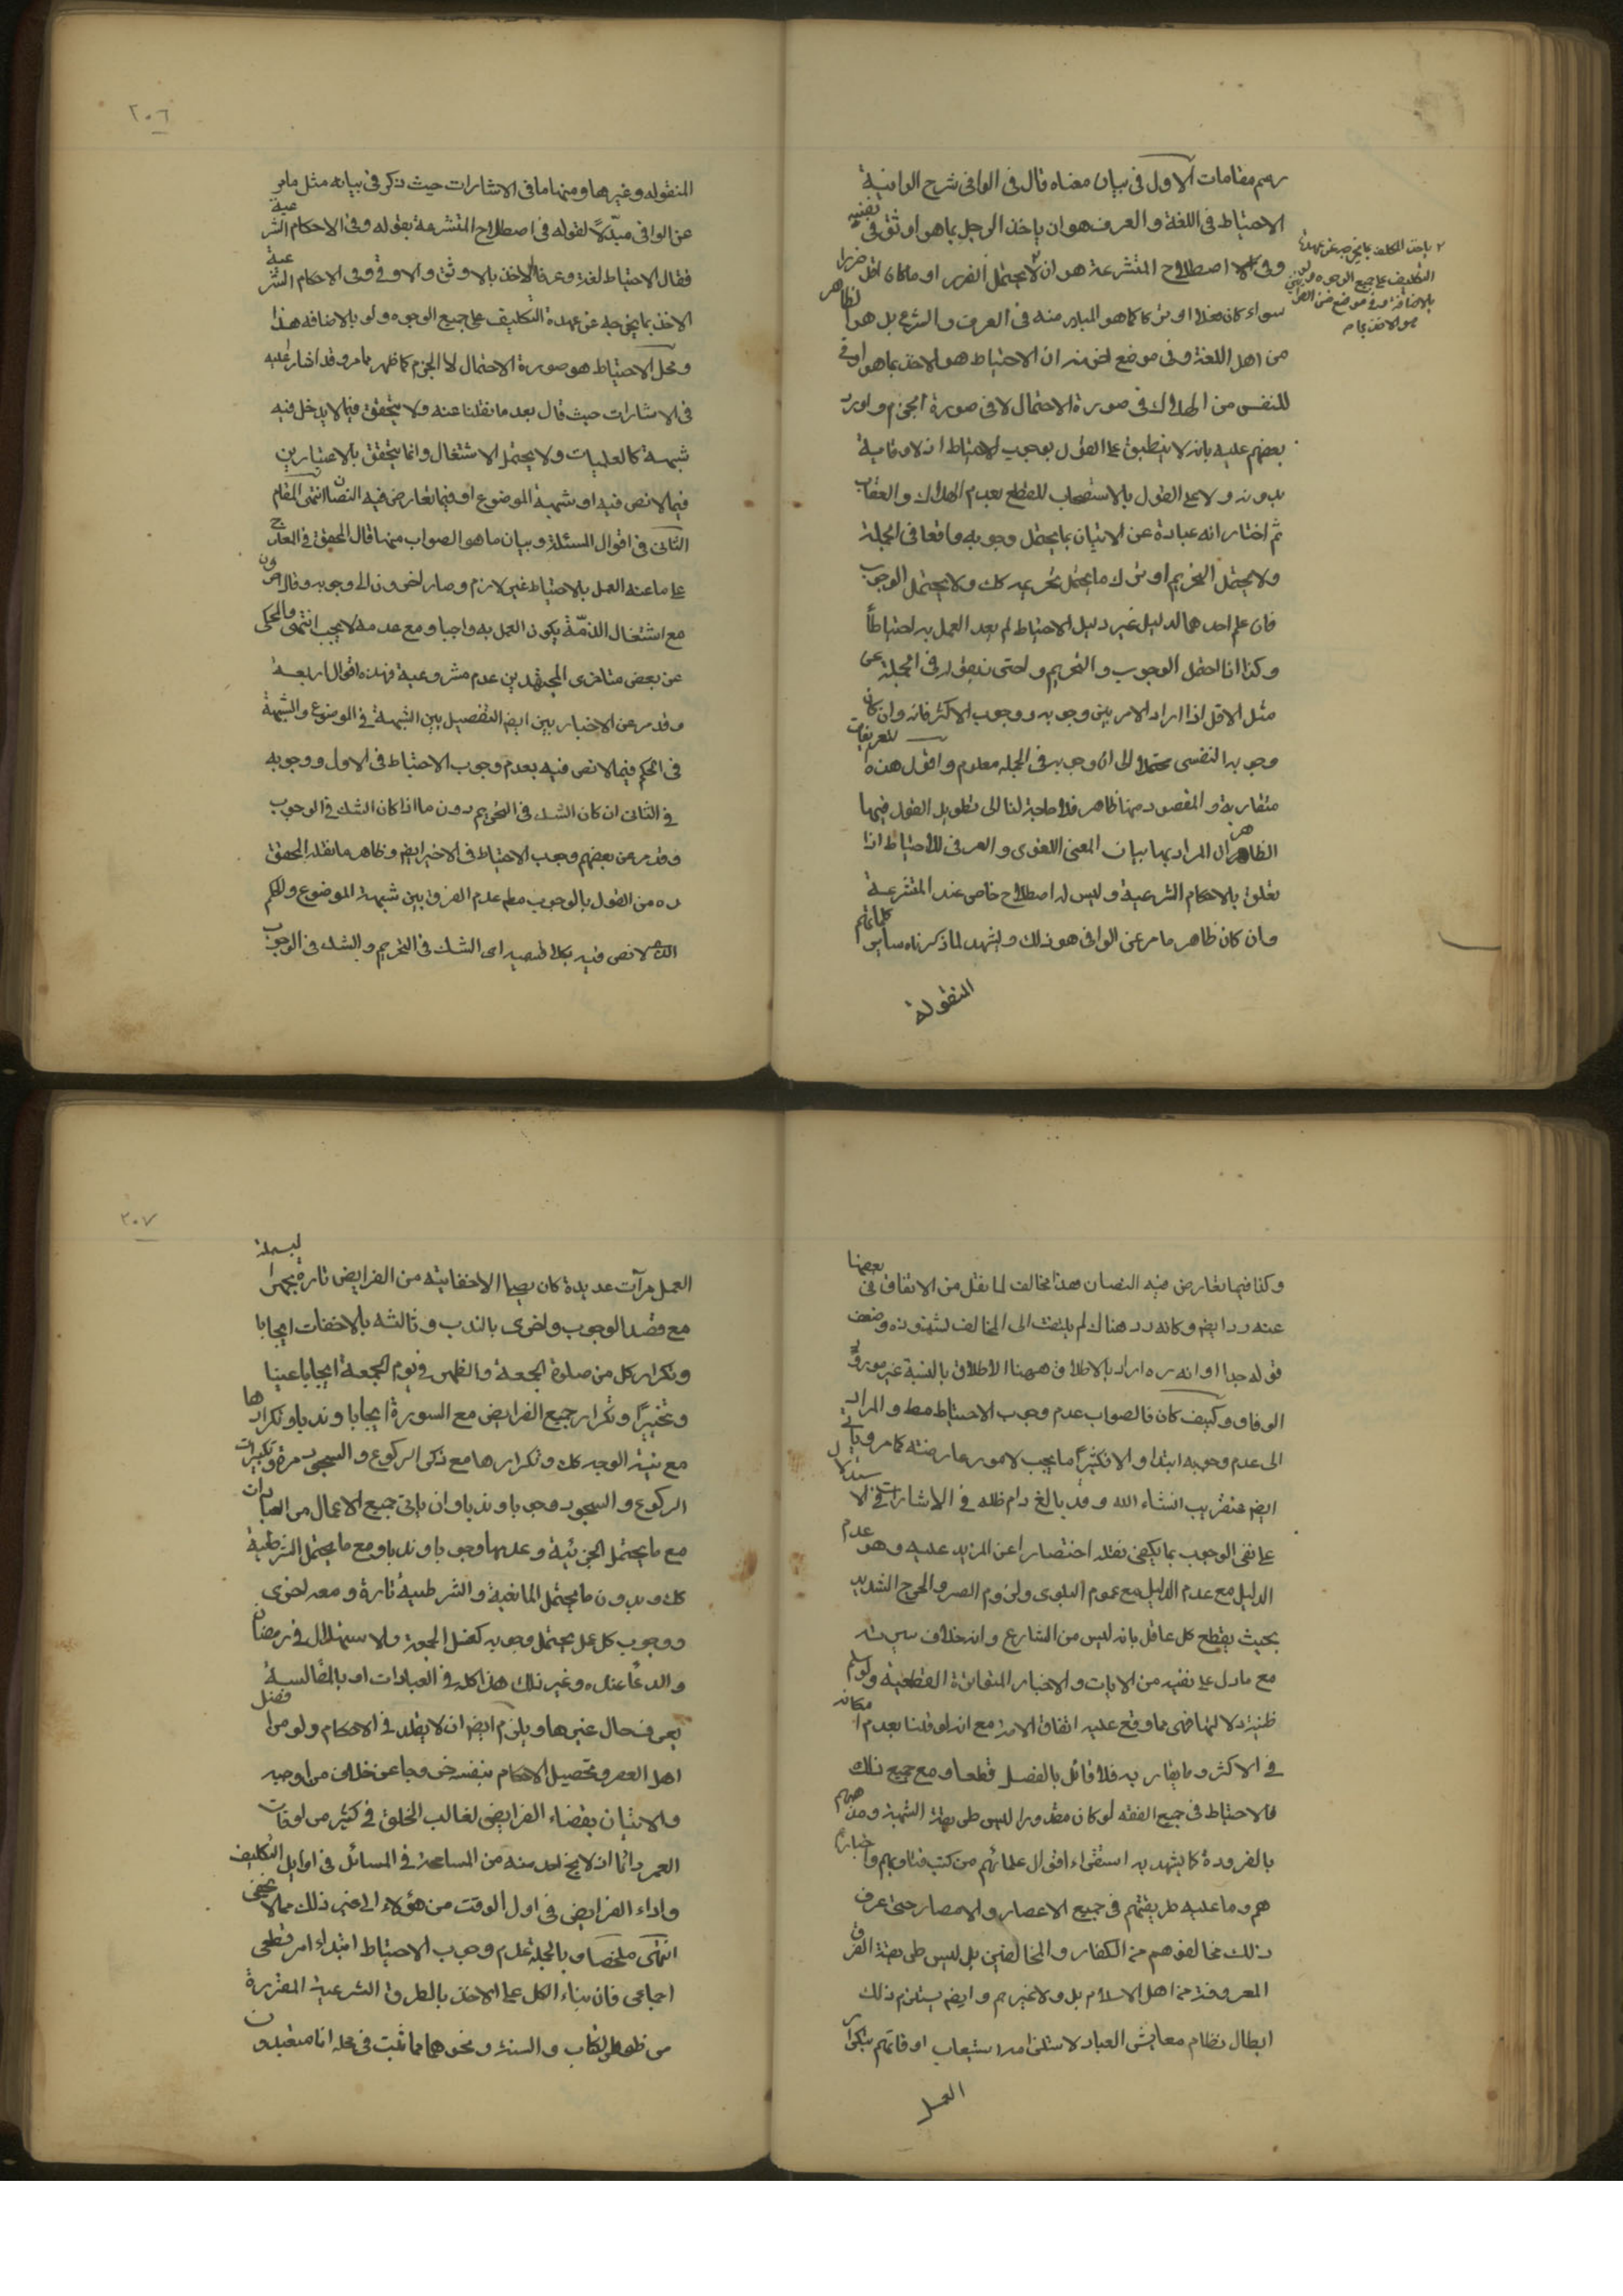 رسم مقامات الاول في بيان معناه قال في الوافي شرح الوافية
الاحتياط في اللغة والعرف هو ان ياخذ الرجل بما هو اوثق في نفسه
وفي اصطلاح المتشرعة هو ان لا يحتمل الضرر او ما كان اقل ضررا
سواء كان فعلا او تركا كما هو المتبادر منه في العرف والشرع بل هو الظاهر
من اهل اللغة وفي موضع اخر منه ان الاحتياط هو الاخذ بما هو اوقى
للنفس من الهلاك في صورة الاحتمال لا في صورة الجزم واورد
بعضهم عليه بانه لا ينطبق على القول بوجوب الاحتياط اذ لا وقاية
بدونه ولا على القول بالاستصحاب للقطع بعدم الهلاك والعقاب
ثم اختار انه عبارة عن الاتيان بما يحتمل وجوبه واقعا في الجملة
ولا يحتمل التحريم او ترك ما يحتمل تحريمه كك ولا يحتمل الوجوب
فان علم احدهما لدليل غير دليل الاحتياط لم يعد العمل به احتياطاً
وكذا اذا احتمل الوجوب والتحريم
مثل الاقل اذا اراد الامر بين وجوبه ووجوب الاكثر فانه وان كان
وجوبه النفسي محتملا الى ان وجوبه في الجملة معلوم واقول هذه التعريفات
متقاربة والمقصود منها ظاهر فلا حاجة لنا الى تطويل القول فيها
الظاهر ان المراد بها بيان المعنى اللغوي والعرفي للاحتياط اذا
تعلق بالاحكام الشرعية وليس له اصطلاح خاص عند المتشرعة
وان كان ظاهر ما مر عن الوافي هو ذلك ويشهد لما ذكرناه ساير كلماتهم
المنقولة
ياخذ المكلف بما يخرجه عن عهدة
التكليف على جميع الوجوه ولو
بالاضافة وفي موضع
هو الاخذ بما
٢٠٦
المنقوله وغيرها ومنها ما في الاشارات حيث ذكر في بيانه مثل ما مر
عن الوافي مبدّلاً لقوله في اصطلاح المتشرعة بقوله وفي الاحكام الشرعية
فقال الاحتياط لغة وعرفا الاخذ بالاوثق والاوقى وفي الاحكام الشرعية
الاخذ بما يخرجه عن عهدة التكليف على جميع الوجوه ولو بالاضافه هذا
ومحل الاحتياط هو صورة الاحتمال لا الجزم كما ظهر مما مر وقد اشار اليه
في الاشارات حيث قال بعد ما نقلنا عنه ولا يتحقق فيما لا يدخل فيه
شبهة كالعلميات ولا يحتمل الاشتغال وانما يتحقق بالاعتبارين
فيما لا نص فيه او شبهة الموضوع او فيما تعارض فيه النصان انتهى المقام
الثاني في اقوال المسئلة وبيان ما هو الصواب منها قال المحقق في المعارج
على ما عنه العمل بالاحتياط غير لازم وصار اخرون الى وجوبه وقال اخرون
مع اشتغال الذمّة يكون العمل به واجبا ومع عدمه لا يجب انتهى والمحكى
عن بعض متاخري المجتهدين عدم مشروعية فهذه اقوال اربعة
وقد مر عن الاخباريين ايضا التفصيل بين الشبهة في الموضوع والشبهة
في الحكم فيما لا نص فيه بعدم وجوب الاحتياط في الاول ووجوبه
في الثاني ان كان الشك في التحريم دون ما اذا كان الشك في الوجوب
وقد مر عن بعضهم وجوب الاحتياط في الاخير ايضا وظاهر ما نقله المحقق
ره من القول بالوجوب مطم عدم الفرق بين شبهة الموضوع والحكم
الذي لا نص فيه بكلا قسميه اي الشك في التحريم والشك في الوجوب
وكذا فيما تعارض فيه النصان وهذا مخالف لما نقل من الاتفاق في بعضها
عنه ره ايضا وكانه ره هناك لم يلتفت الى المخالف لشذوذه وضعف
قوله جدا او انه ره اراد بالاطلاق ههنا الاطلاق بالنسبة غير مورد
الوفاق وكيف كان فالصواب عدم وجوب الاحتياط مط والمراد
الى عدم وجوبه ابتداء والا فكثيراً ما يجب لامور عارضته كما مر وياتي
ايضا عنقريب انشاء الله وقد بالغ دام ظله في الاشارات في الاستدلال
على نفي الوجوب بما يكفي نقله اختصارا عن المزيد عليه وهو عدم
الدليل مع عدم الدليل مع عموم البلوى ولزوم العسر والحرج الشديد
بحيث يقطع كل عاقل بانه ليس من الشارع وانه خلاف سيرته
مع ما دل على نفيه من الايات والاخبار المتواترة القطعية ولو سلم
ظنية دلالتها فهي مما وقع عليه اتفاق الامة مع انه لو قلنا بعدم امكانه
في الاكثر وما يقاربه فلا قائل بالفصل قطعا ومع جميع ذلك
فالاحتياط في جميع الفقه لو كان مقدورا ليس طريقة الشيعة ومذهبهم
بالضرورة كما يشهد به استقراء اقوال علمائهم من كتب فتاويهم واخبارهم
هم وما عليه طريقتهم في جميع الاعصار والامصار حتى عرف
ذلك مخالفوهم من الكفار والمخالفين بل ليس طريقة الفرق
المعروفة من اهل الاسلام بل ولا غيرهم وايضا يستلزم ذلك
ابطال نظام معايش العباد لاستلزامه استيعاب اوقاتهم بتكرار
العمل
٢٠٧
العمل مرآت عديدة كان يصلي الاخفاتية من الفرايض تارة بجهر البسملة
مع قصد الوجوب واخرى بالندب وثالثه بالاخفات ايجابا
وتكرار كل من صلوة الجمعة والظهر في يوم الجمعة ايجابا عينا
وتخييراً وتكرار جميع الفرايض مع السورة ايجابا وندبا وتكرارها
مع نية الوجه كك وتكرارها مع ذكر الركوع والسجود مرة وتكبيرات
الركوع والسجود وجوبا وندبا وان ياتي جميع الاعمال من العبادات
مع ما يحتمل الجزئية وعدمها وجوبا وندبا ومع ما يحتمل الشرطية
كك وبدون ما يحتمل المانعية والشرطية تارة ومعه اخرى
ووجوب كل عمل يحتمل وجوبه كغسل الجمعة والاستهلال في رمضان
والدعا عنده وغير ذلك هذا كله في العبادات
يعرف حال غيرها ويلزم ايضا ان لا يقلد في الاحكام ولو من افضل
اهل العصر وتحصيل الاحكام بنفسه خروجا عن خلاف من اوجبه
والاتيان بقضاء الفرايض لغالب الخلق في كثير من اوقات
العمر دائما اذ لا يخ احد منه من المسامحة في المسائل في اوايل التكليف
واداء الفرايض في اول الوقت من هؤلاء الى غير ذلك مما لا يخفى
انتهى ملخصا وبالجملة عدم وجوب الاحتياط ابتداء امر قطعي
اجماعي فان بناء الكل على الاخذ بالطرق الشرعية المقررة
من ظواهر الكتاب والسنة ونحوهما مما ثبت في محله انا متعبدون